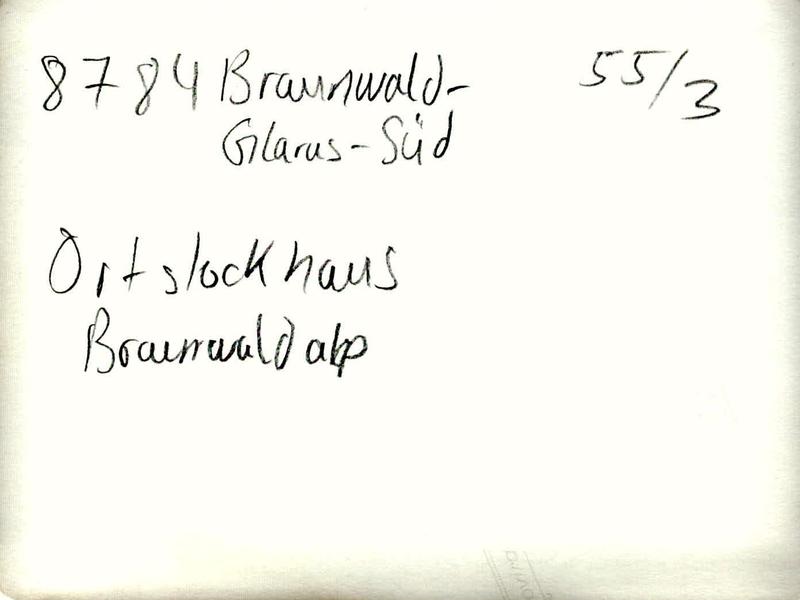 8784 Braunwald- 55/3
Glarus-Süd
Ortstockhaus
Braunwaldalp